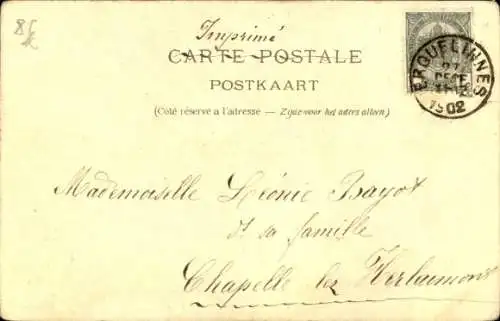 Imprimé
CARTE POSTALE
POSTKAART
(Côté réservé a l'adresse — Zijde voor het adres alleen.)
ERQUELINNES
27
DECE
1902
Mademoiselle Léonie Bayot
et sa famille
Chapelle lez Herlaimont